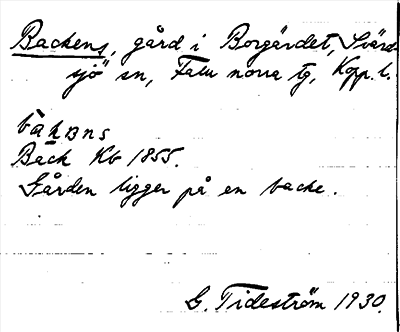 Backens, gård i Borgärdet, Svärd-
sjö sn, Falu norra tg, Kopp. l.
Back Kb 1855.
Gården ligger på en backe.
G. Tideström 1930.